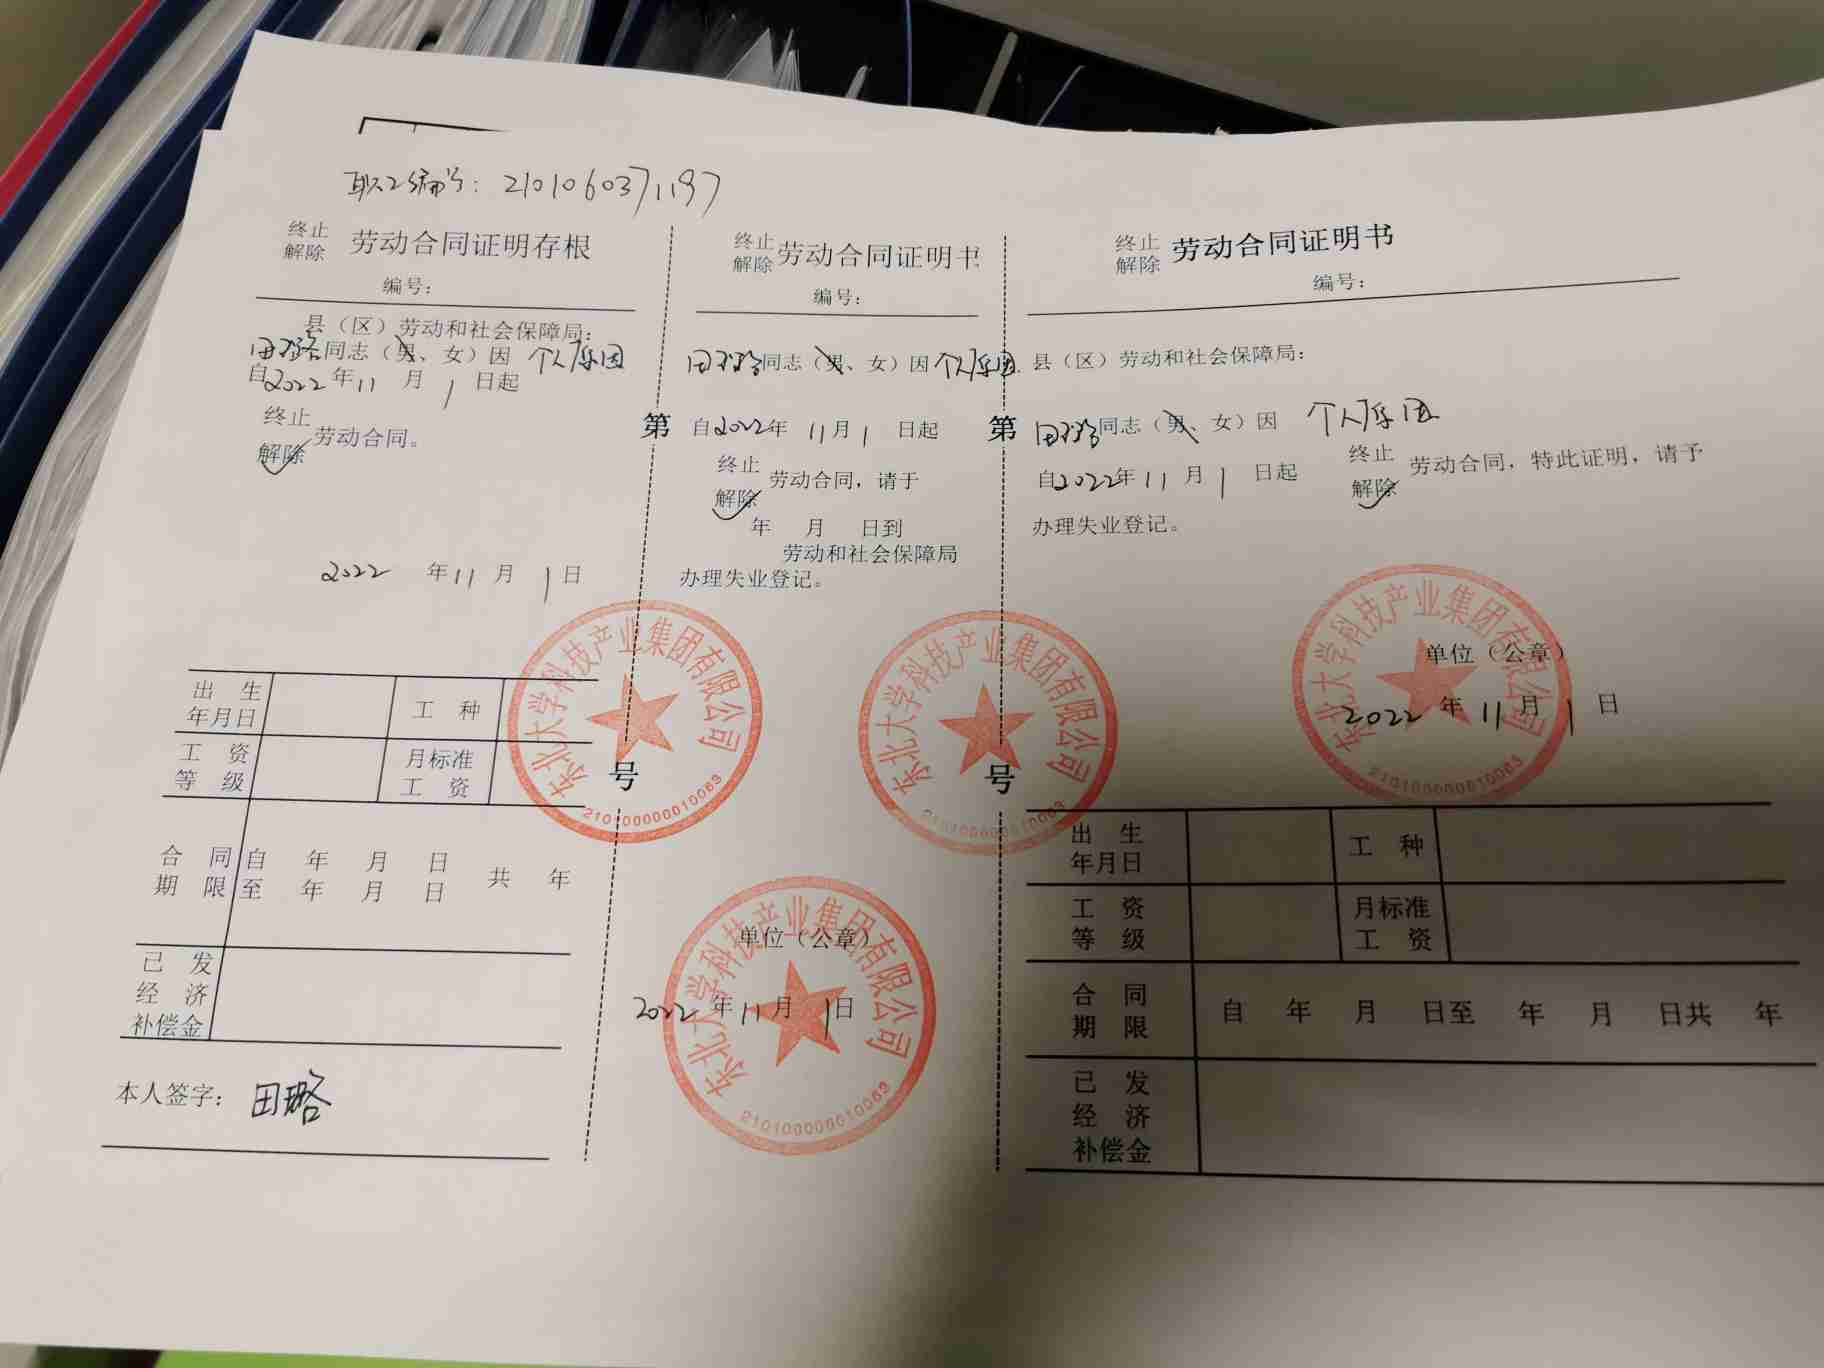 职工编号：2101060371197
终止
解除 劳动合同证明存根
编号：
县（区）劳动和社会保障局：
田璐同志（男、女）因 个人原因
自2022年11月1日起
终止
解除 劳动合同。
2022年11月1日
出生
年月日 工种
工资
等级 月标准
工资
合同
期限 自 年 月 日
至 年 月 日 共 年
已发
经济
补偿金
本人签字：田璐
第
号
终止
解除 劳动合同证明书
编号：
田璐同志（男、女）因个人原因
自2022年11月1日起
终止
解除 劳动合同，请于
年 月 日到
劳动和社会保障局
办理失业登记。
单位（公章）
2022年11月1日
第
号
终止
解除 劳动合同证明书
编号：
县（区）劳动和社会保障局：
田璐同志（男、女）因 个人原因
自2022年11月1日起 终止
解除 劳动合同，特此证明，请予
办理失业登记。
单位（公章）
2022年11月1日
出生
年月日 工种
工资
等级 月标准
工资
合同
期限 自 年 月 日至 年 月 日共 年
已发
经济
补偿金
东北大学科技产业集团有限公司
2101000000010063
东北大学科技产业集团有限公司
2101000000010063
东北大学科技产业集团有限公司
2101000000010063
东北大学科技产业集团有限公司
2101000000010063